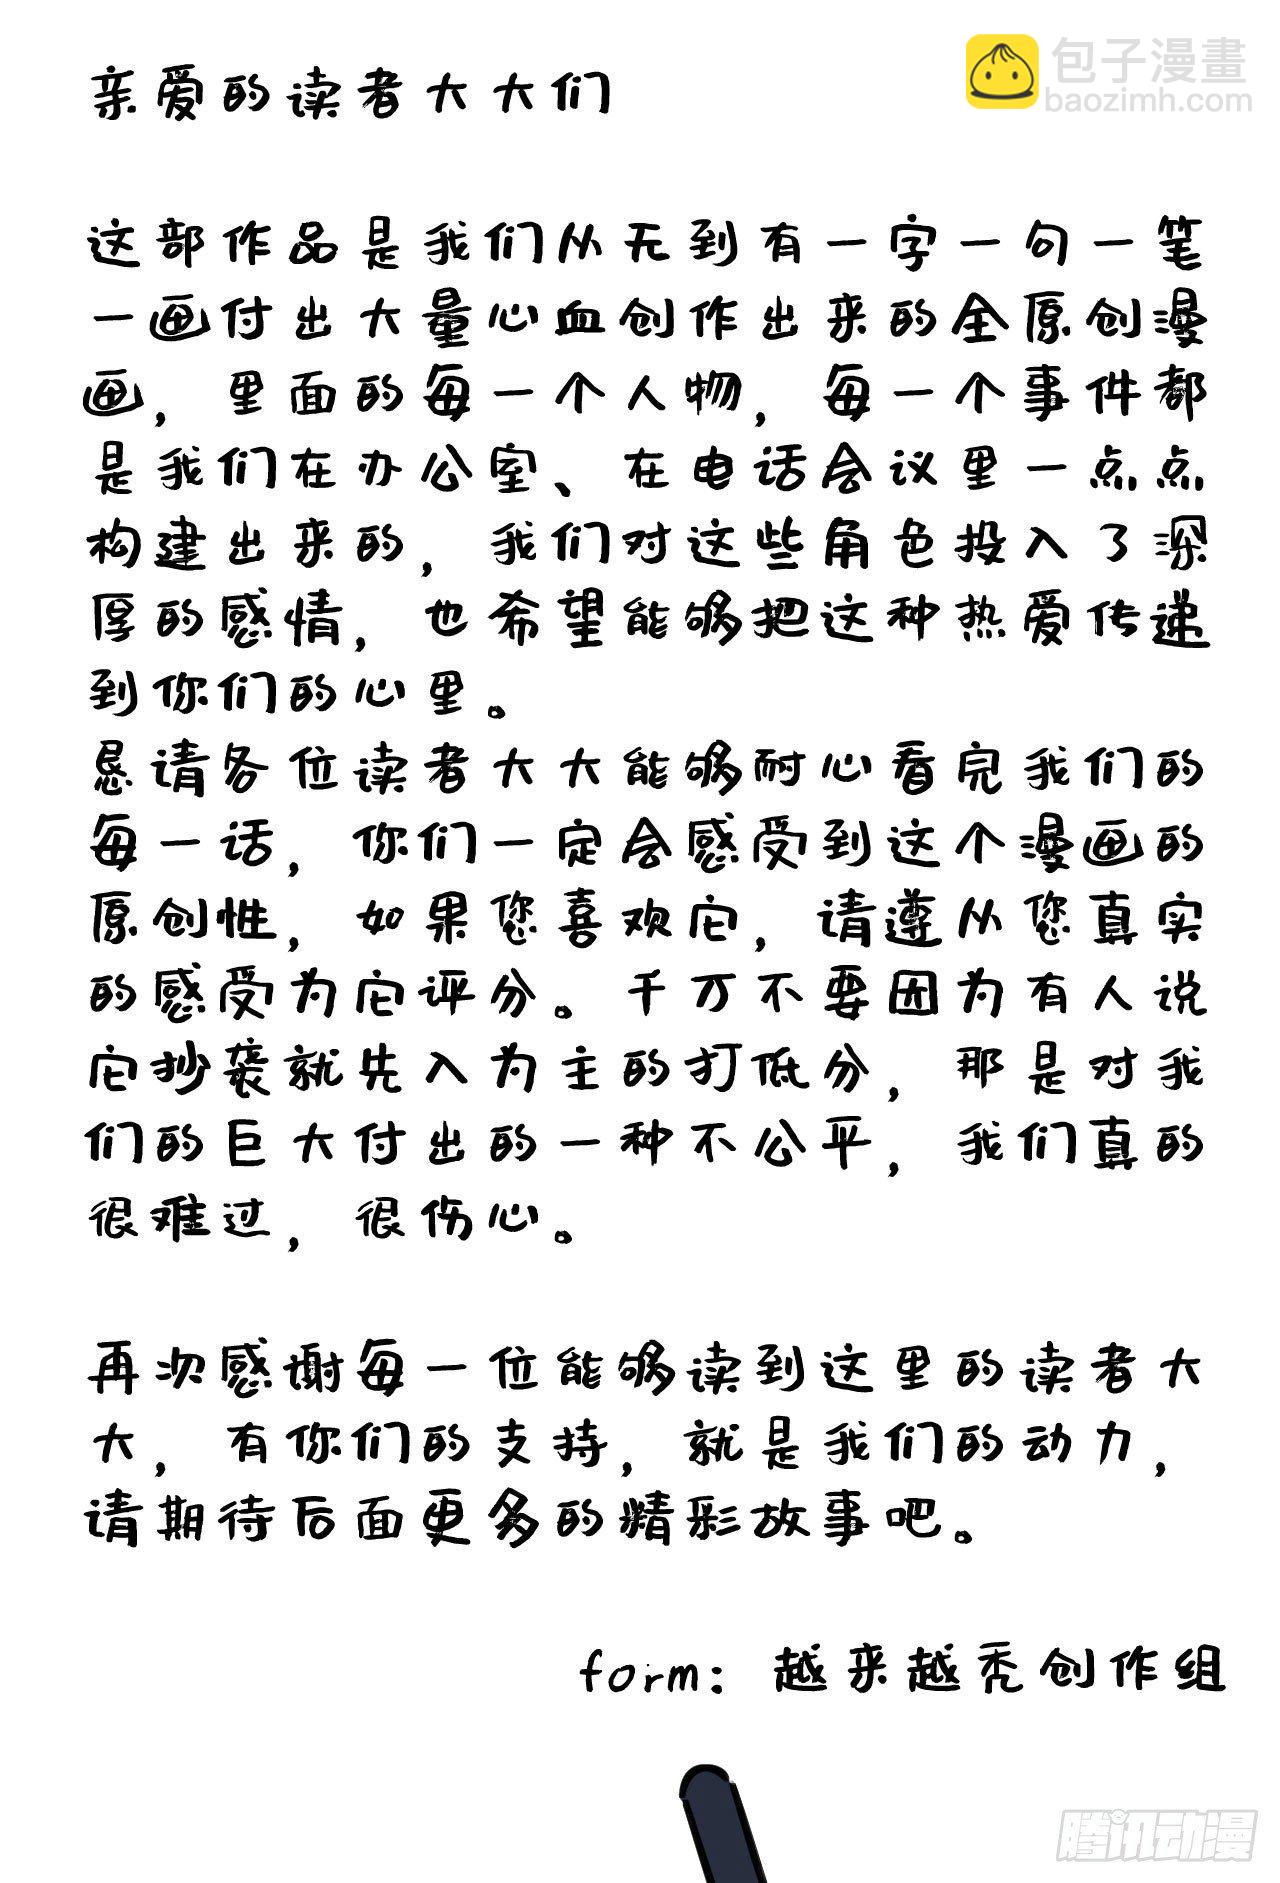 包子漫畫
baozimh.com
亲爱的读者大大们
这部作品是我们从无到有一字一句一笔
一画付出大量心血创作出来的全原创漫
画，里面的每一个人物，每一个事件都
是我们在办公室、在电话会议里一点点
构建出来的，我们对这些角色投入了深
厚的感情，也希望能够把这种热爱传递
到你们的心里。
恳请各位读者大大能够耐心看完我们的
每一话，你们一定会感受到这个漫画的
原创性，如果您喜欢它，请遵从您真实
的感受为它评分。千万不要因为有人说
它抄袭就先入为主的打低分，那是对我
们的巨大付出的一种不公平，我们真的
很难过，很伤心。
再次感谢每一位能够读到这里的读者大
大，有你们的支持，就是我们的动力，
请期待后面更多的精彩故事吧。
form：越来越秃创作组
腾讯动漫